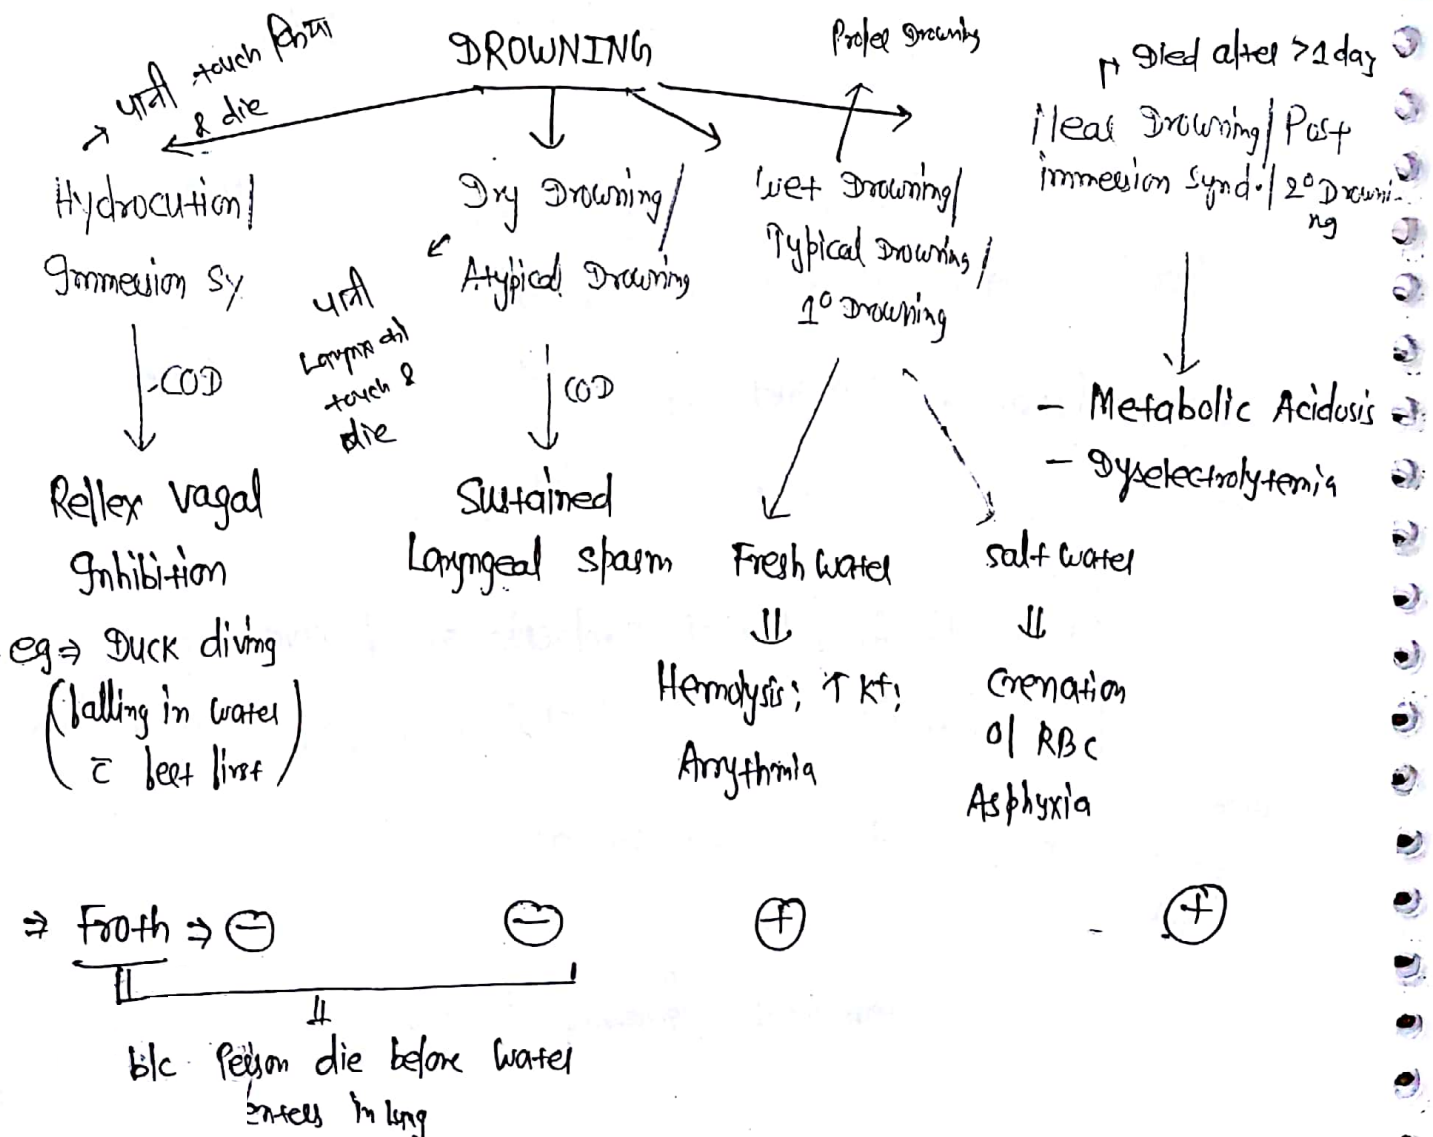 DROWNING
पानी touch किया
& die
Hydrocution/
Immersion Sy
COD
Reflex vagal
Inhibition
eg ⇒ Duck diving
(falling in water
c̅ feet first)
Dry Drowning/
Atypical Drowning
पानी
Larynx को
touch &
die
COD
Sustained
Laryngeal spasm
Proper Drowning
Wet Drowning/
Typical Drowning/
1° Drowning
Fresh water
⇓
Hemolysis; ↑ K+;
Arrythmia
salt water
⇓
Crenation
of RBC
Asphyxia
Died after >1 day
Near Drowning/ Post
immersion synd./ 2° Drowni-
ng
- Metabolic Acidosis
- Dyselectrolytemia
⇒ Froth ⇒ ⊖ ⊖ ⊕ - ⊕
⇓
b/c Person die before water
enters in lung